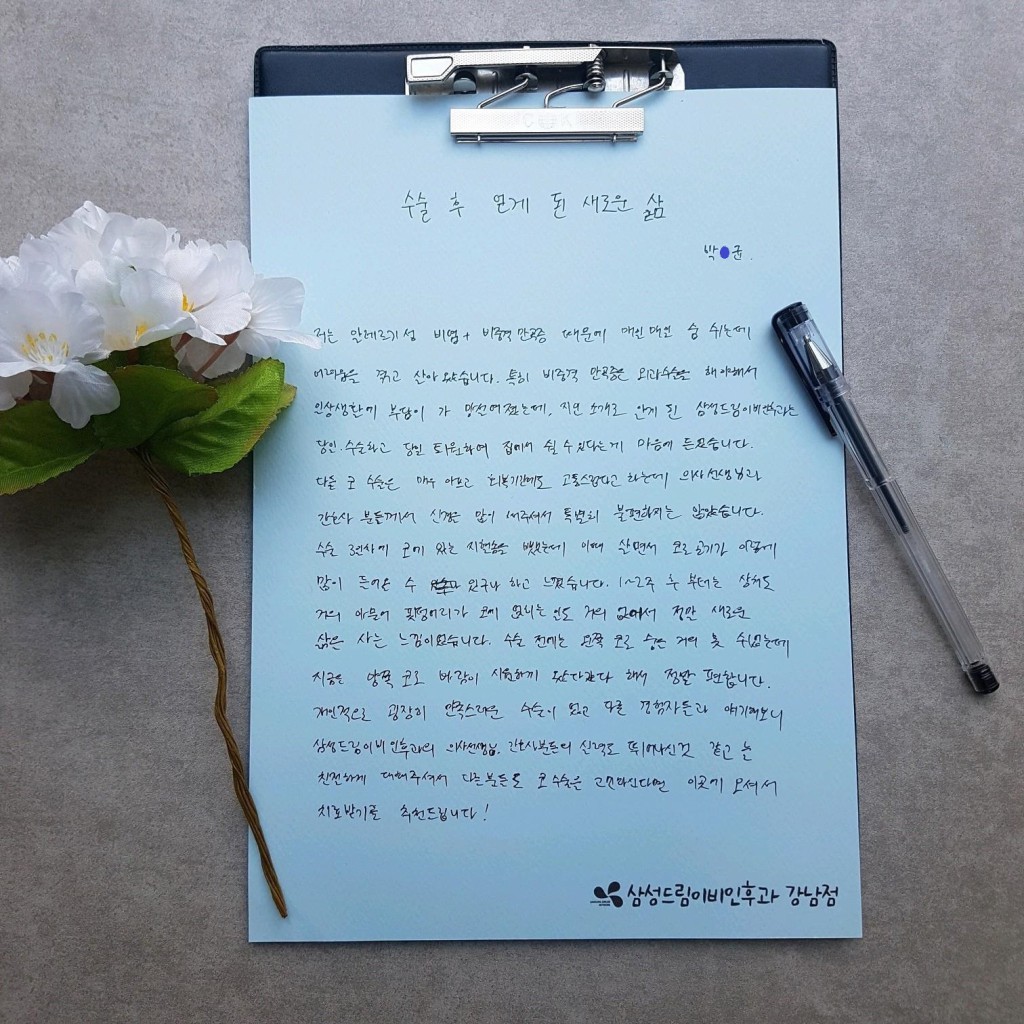 수술 후 얻게 된 새로운 삶
박 균.
저는 알레르기성 비염 + 비중격만곡증 때문에 매일매일 숨 쉬는데
어려움을 겪고 살아 왔습니다. 특히 비중격 만곡증은 외과수술을 해야해서
일상생활에 부담이 가 망설여졌는데, 지인 소개로 알게 된 삼성드림이비인후과는
당일 수술하고 당일 퇴원하여 집에서 쉴 수 있다는게 마음에 들었습니다.
다들 코 수술은 매우 아프고 회복기간에도 고통스럽다고 하는데 의사선생님과
간호사 분들께서 신경을 많이 써주셔서 특별히 불편하지는 않았습니다.
수술 3일차에 코에 있는 지혈솜을 뺐는데 이때 살면서 코로 공기가 이렇게
많이 들어올 수 있구나 하고 느꼈습니다. 1~2주 후 부터는 상처도
거의 아물어 핏덩어리가 코에 맺히는 일도 거의 없어서 정말 새로운
삶을 사는 느낌이었습니다. 수술 전에는 왼쪽 코로 숨을 거의 못 쉬었는데
지금은 양쪽 코로 바람이 시원하게 왔다갔다 해서 정말 편합니다.
개인적으로 굉장히 만족스러운 수술이 었고 다른 경험자들과 얘기해보니
삼성드림이비인후과의 의사선생님, 간호사분들의 실력도 뛰어나신것 같고 늘
친절하게 대해주셔서 다른분들도 코 수술을 고민하신다면 이곳에 오셔서
치료받기를 추천드립니다!
삼성드림이비인후과 강남점